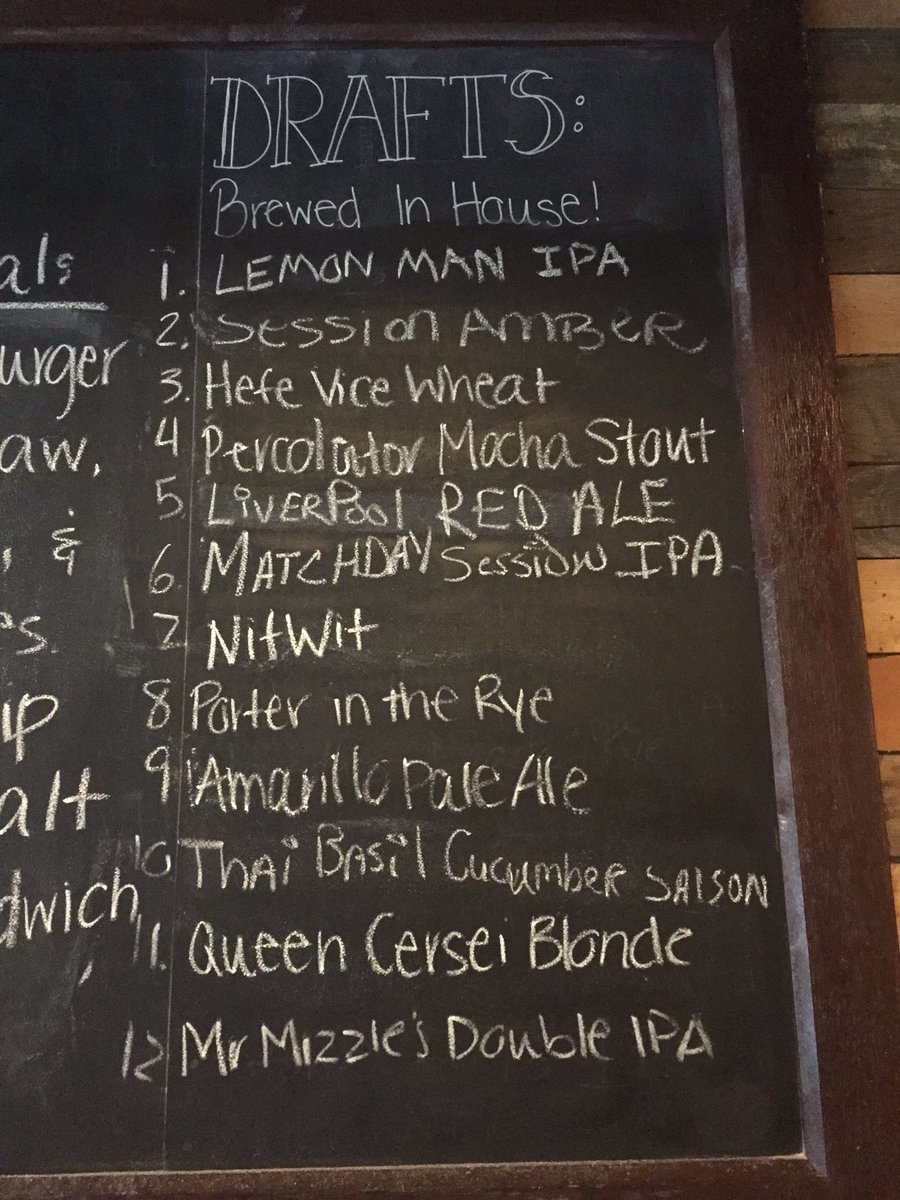 DRAFTS:
Brewed In House!
1. LEMON MAN IPA
2. Session AMBER
3. Hefe Vice Wheat
4 Percolator Mocha Stout
5 LIVERPOOL RED ALE
6. MATCHDAY Session IPA
7 NitWit
8 Porter in the Rye
9 Amarillo Pale Ale
10 Thai Basil Cucumber SAISON
11. Queen Cersei Blonde
12 Mr Mizzle's Double IPA
als
urger
aw,
, &
es
ip
alt
dwich,